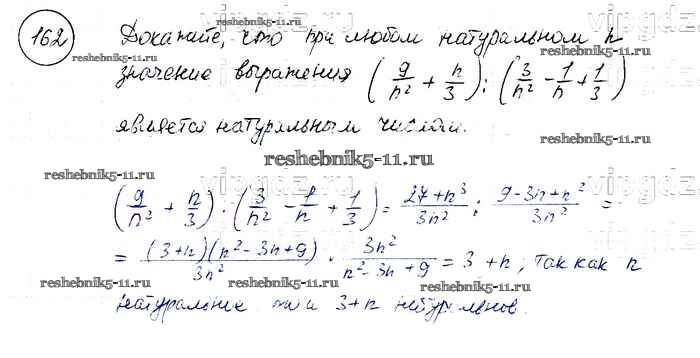 162 Докажите, что при любом натуральном n
значение выражения (9/n² + n/3) : (3/n² - 1/n + 1/3)
является натуральным числом.
(9/n² + n/3) : (3/n² - 1/n + 1/3) = (27+n³)/3n² : (9-3n+n²)/3n² =
= (3+n)(n²-3n+9)/3n² · 3n²/(n²-3n+9) = 3+n; так как n
натуральное и 3+n натурально.
vipgdz
reshebnik5-11.ru
reshebnik5-11.ru
reshebnik5-11.ru
reshebnik5-11.ru
reshebnik5-11.ru
vipgdz
reshebnik5-11.ru
reshebnik5-11.ru
reshebnik5-11.ru
vipgdz